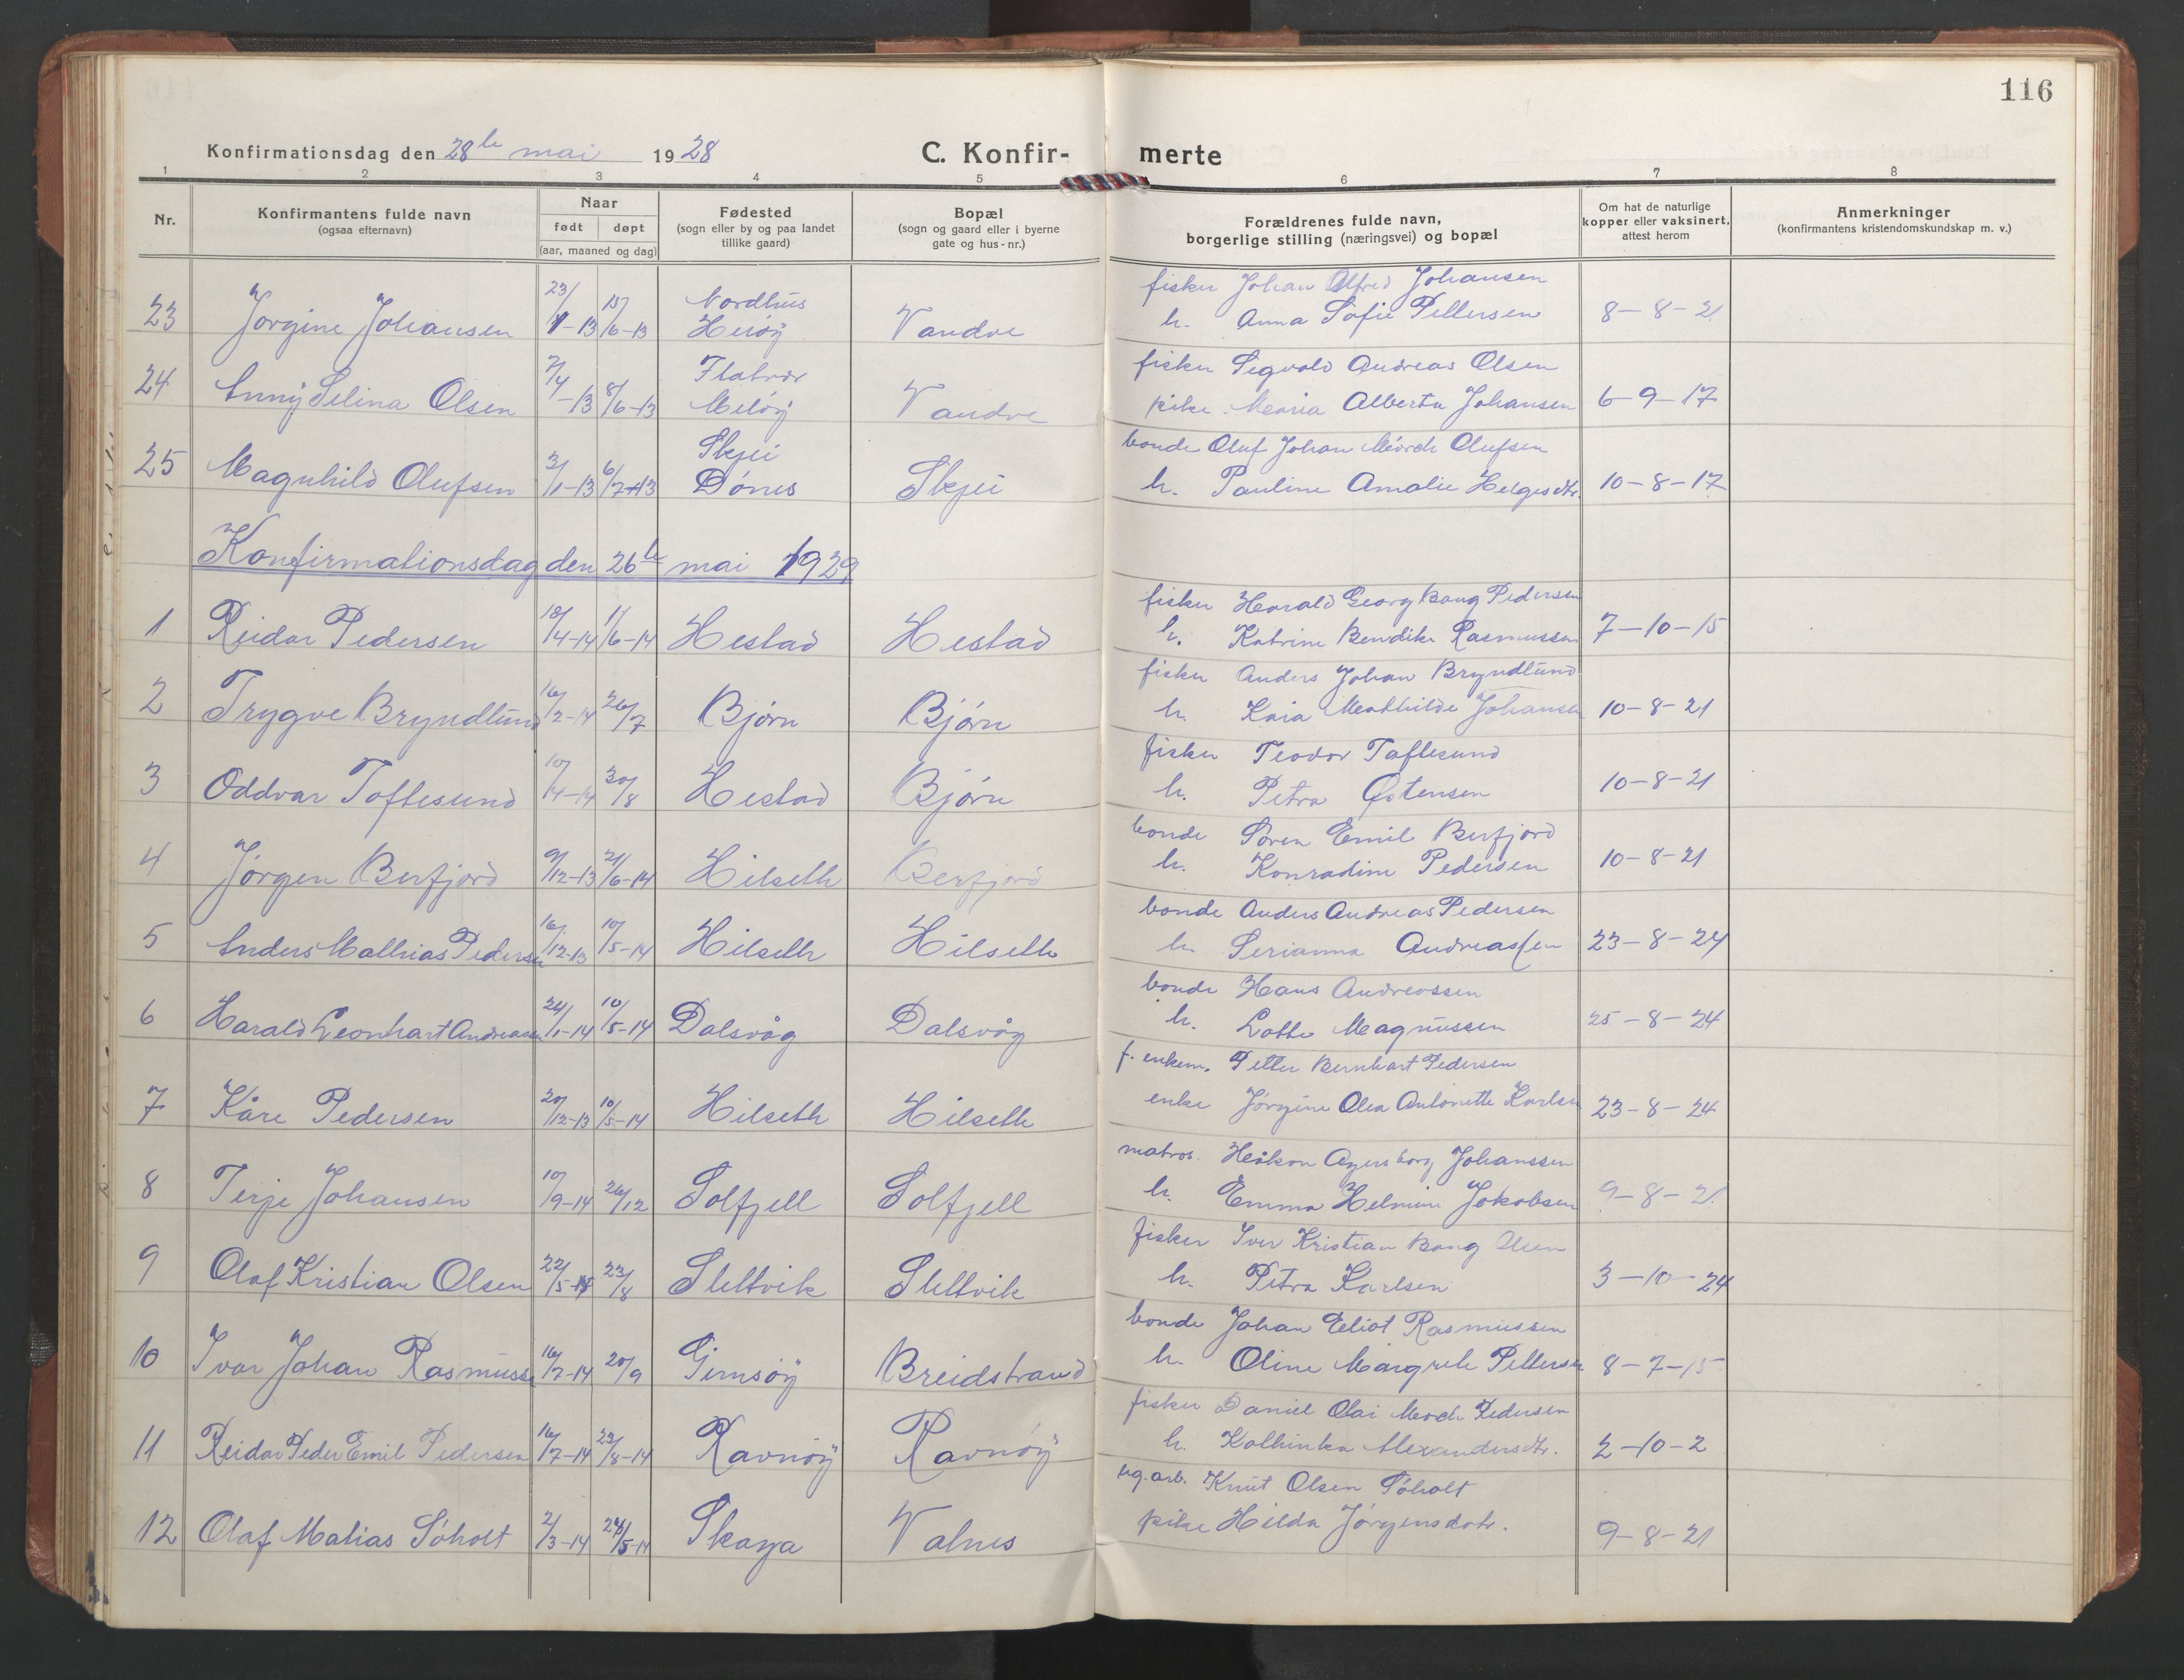 116
Konfirmationsdag den 28de mai 1928
C. Konfir- merte
1 2 3 4 5 6 7 8
Nr.
Konfirmantens fulde navn
(ogsaa efternavn)
Naar
født døpt
(aar, maaned og dag)
Fødested
(sogn eller by og paa landet
tillike gaard)
Bopæl
(sogn og gaard eller i byerne
gate og hus-nr.)
Forældrenes fulde navn,
borgerlige stilling (næringsvei) og bopæl
Om hat de naturlige
kopper eller vaksinert,
attest herom
Anmerkninger
(konfirmantens kristendomskundskap m. v.)
23/ 15/ Nordhus fisker Johan Alfred Johansen
23 Jørgine Johansen 1-13 6-13 Herøy Vandve h. Anna Sofie Pettersen 8-8-21
Flatvær fisker Sigvald Andreas Olsen
24 Anny Selina Olsen 7/4-13 8/6-13 Meløy Vandve pike Maria Alberta Johansen 6-9-17
Skjei bonde Oluf Johan Mörch Olufsen
25 Magnhild Olufsen 3/1-13 6/7-13 Dönes Skjei h. Pauline Amalie Helgesdtr. 10-8-17
Konfirmationsdag den 26de mai 1929
fisker Harald Georg Bang Pedersen
1 Reidar Pedersen 18/4-14 1/6-14 Hestad Hestad h. Katrine Bendikte Rasmussen 7-10-15
fisker Anders Johan Bryndlund
2 Trygve Bryndlund 16/2-14 26/7 Bjørn Bjørn h. Kaia Mathilde Johansen 10-8-21
fisker Teodor Toftesund
3 Oddvar Toftesund 10/4-14 30/8 Hestad Bjørn h. Petra Ostensen 10-8-21
bonde Sören Emil Berfjord
4 Jørgen Berfjord 9/12-13 21/6-14 Hilseth Berfjord h. Konradine Pedersen 10-8-21
bonde Anders Andreas Pedersen
5 Anders Mathias Pedersen 16/12-13 10/5-14 Hilseth Hilseth h. Serianna Andreassen 23-8-24
bonde Hans Andreassen
6 Harald Leonhart Andreassen 24/1-14 10/5-14 Dalsvåg Dalsvåg h. Lotte Magnussen 25-8-24
f. enkem. Petter Bernhart Pedersen
7 Kåre Pedersen 20/12-13 10/5-14 Hilseth Hilseth enke Jørgine Olea Antonette Karlsen 23-8-24
matros. Håkon Agersborg Johanssen
8 Terje Johansen 10/9-14 26/12 Solfjell Solfjell h. Emma Helmine Jakobsen 9-8-21
fisker Iver Kristian Bang Olsen
9 Olaf Kristian Olsen 22/5-14 23/8 Slettvik Slettvik h. Petra Karlsen 3-10-24
bonde Johan Eliot Rasmussen
10 Ivar Johan Rasmussen 16/7-14 20/9 Gimsøy Breidstrand h. Oline Margrete Pettersen 8-7-15
fisker Daniel Olai Mørch Pedersen
11 Reidar Peder Emil Pedersen 16/7-14 23/8-14 Ravnöy Ravnöy h. Kathinka Alexandersdtr. 2-10-2
ug. arb. Knut Olsen Söholt
12 Olaf Matias Söholt 2/3-14 24/5-14 Skaga Valnes pike Hilda Jørgensdotr. 9-8-21